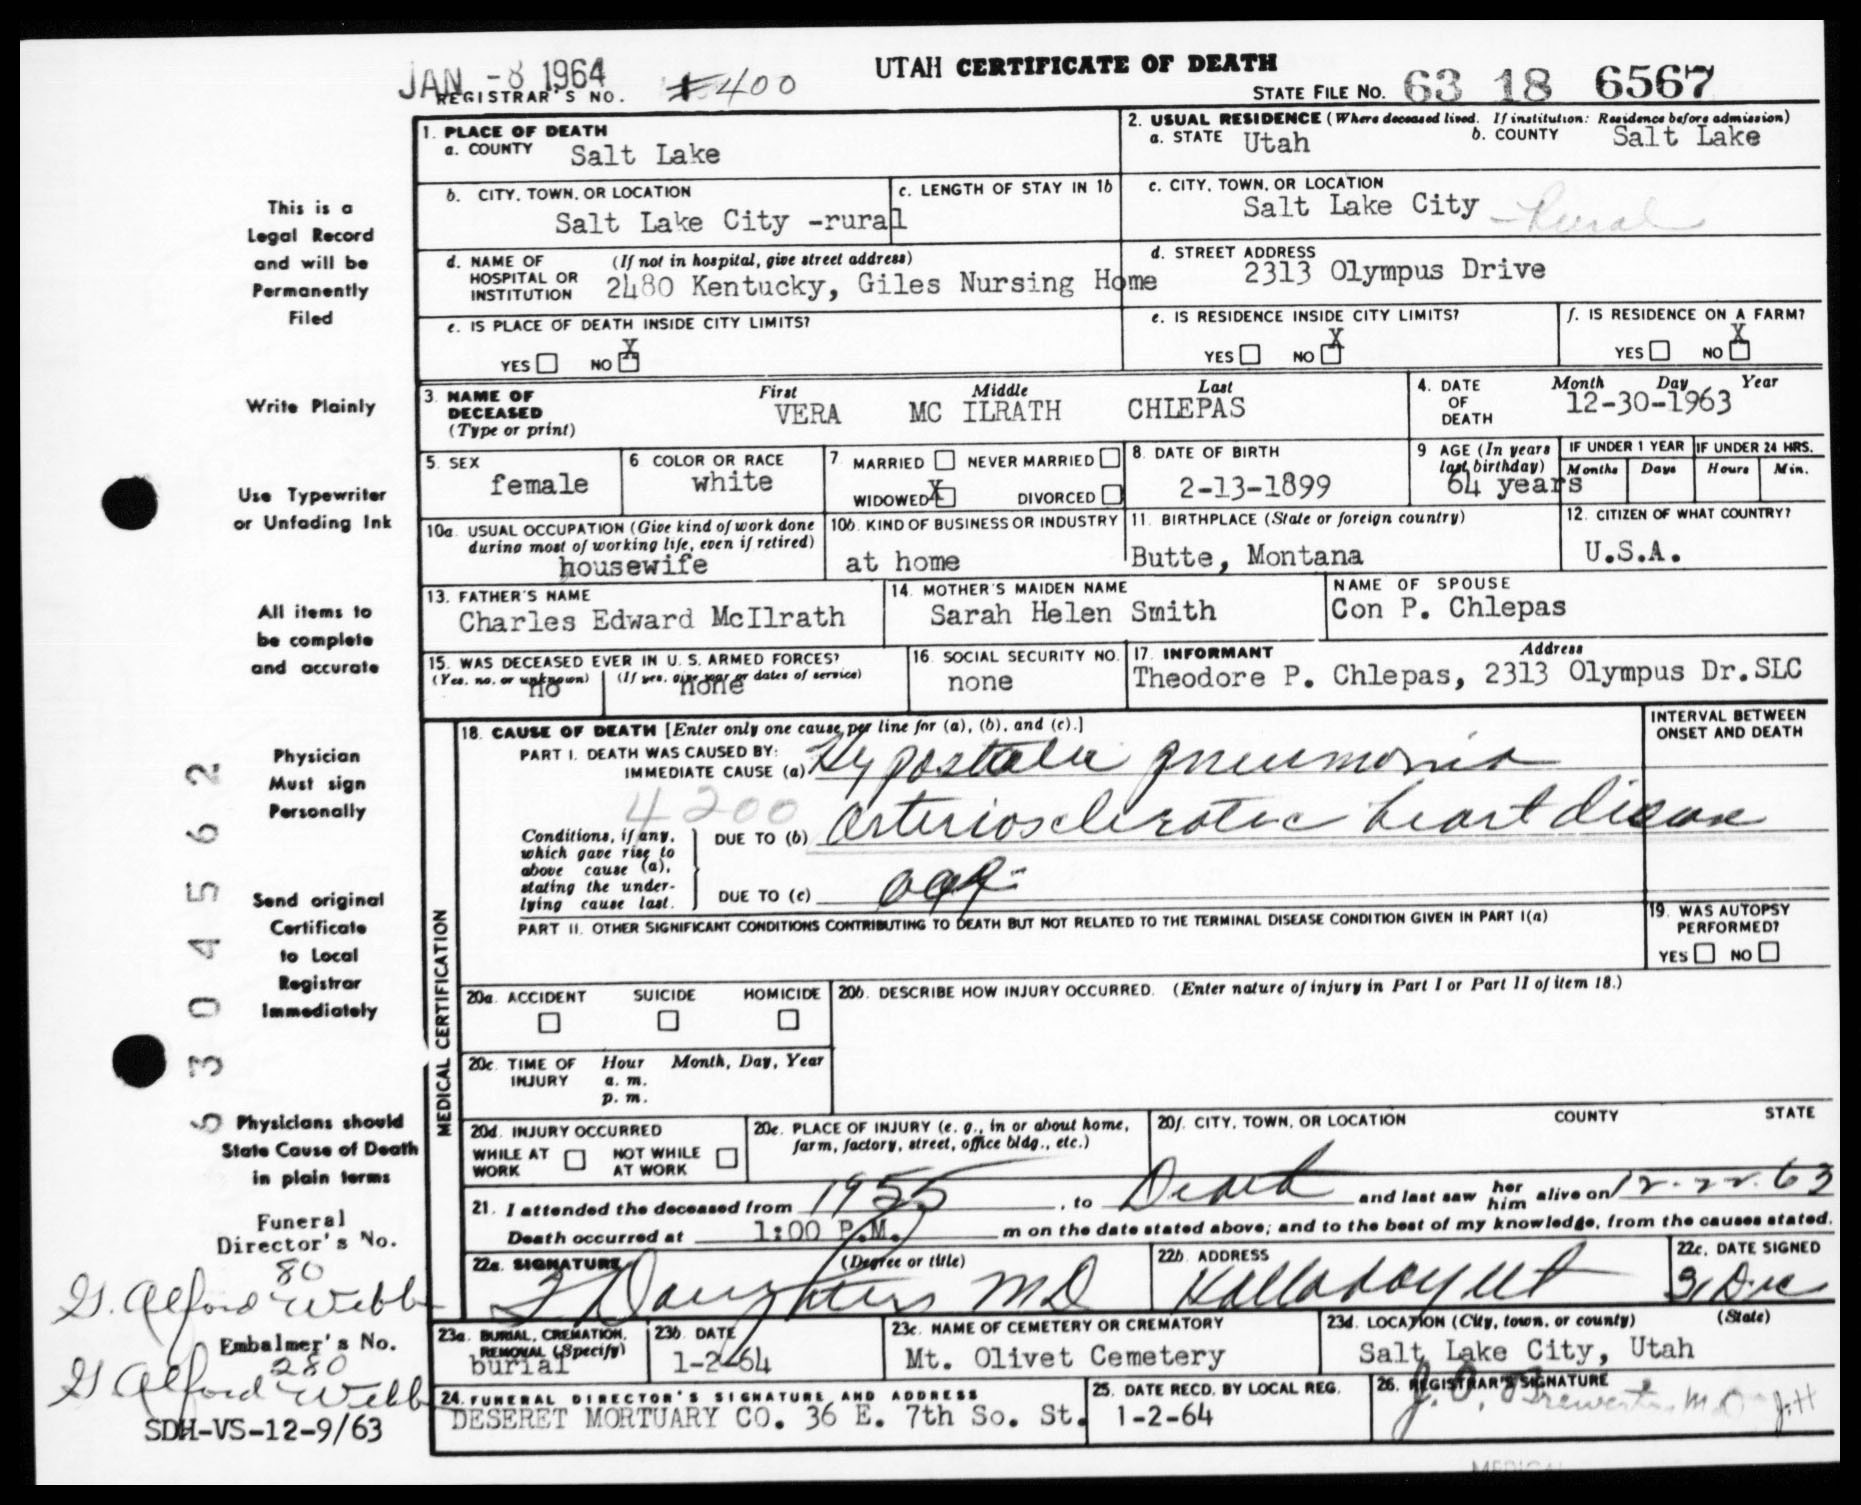 JAN -8 1964
UTAH CERTIFICATE OF DEATH
REGISTRAR'S NO. 400
STATE FILE NO. 63 18 6567
1. PLACE OF DEATH
a. COUNTY Salt Lake
2. USUAL RESIDENCE (Where deceased lived. If institution: Residence before admission)
a. STATE Utah b. COUNTY Salt Lake
b. CITY, TOWN, OR LOCATION Salt Lake City -rural
c. LENGTH OF STAY IN 1b
c. CITY, TOWN, OR LOCATION
Salt Lake City -Rural
d. NAME OF HOSPITAL OR INSTITUTION (If not in hospital, give street address)
2480 Kentucky, Giles Nursing Home
d. STREET ADDRESS
2313 Olympus Drive
e. IS PLACE OF DEATH INSIDE CITY LIMITS?
YES NO X
e. IS RESIDENCE INSIDE CITY LIMITS?
YES NO X
f. IS RESIDENCE ON A FARM?
YES NO X
3. NAME OF DECEASED (Type or print)
First Middle Last
VERA MC ILRATH CHLEPAS
4. DATE OF DEATH Month Day Year
12-30-1963
5. SEX
female
6 COLOR OR RACE
white
7. MARRIED NEVER MARRIED
WIDOWED X DIVORCED
8. DATE OF BIRTH
2-13-1899
9 AGE (In years last birthday)
64 years
IF UNDER 1 YEAR IF UNDER 24 HRS.
Months Days Hours Min.
10a. USUAL OCCUPATION (Give kind of work done during most of working life, even if retired)
housewife
10b. KIND OF BUSINESS OR INDUSTRY
at home
11. BIRTHPLACE (State or foreign country)
Butte, Montana
12. CITIZEN OF WHAT COUNTRY?
U.S.A.
13. FATHER'S NAME
Charles Edward McIlrath
14. MOTHER'S MAIDEN NAME
Sarah Helen Smith
NAME OF SPOUSE
Con P. Chlepas
15. WAS DECEASED EVER IN U. S. ARMED FORCES?
(Yes, no, or unknown) (If yes, give war or dates of service)
no none
16. SOCIAL SECURITY NO.
none
17. INFORMANT Address
Theodore P. Chlepas, 2313 Olympus Dr. SLC
18. CAUSE OF DEATH [Enter only one cause per line for (a), (b), and (c).]
INTERVAL BETWEEN ONSET AND DEATH
PART I. DEATH WAS CAUSED BY:
IMMEDIATE CAUSE (a) Hypostatic pneumonia
4200
Conditions, if any, which gave rise to above cause (a), stating the underlying cause last.
DUE TO (b) Arteriosclerotic heart disease
DUE TO (c) age
PART II. OTHER SIGNIFICANT CONDITIONS CONTRIBUTING TO DEATH BUT NOT RELATED TO THE TERMINAL DISEASE CONDITION GIVEN IN PART I(a)
19. WAS AUTOPSY PERFORMED?
YES NO
MEDICAL CERTIFICATION
20a. ACCIDENT SUICIDE HOMICIDE
20b. DESCRIBE HOW INJURY OCCURRED. (Enter nature of injury in Part I or Part II of item 18.)
20c. TIME OF INJURY Hour Month, Day, Year
a. m.
p. m.
20d. INJURY OCCURRED
WHILE AT WORK NOT WHILE AT WORK
20e. PLACE OF INJURY (e. g., in or about home, farm, factory, street, office bldg., etc.)
20f. CITY, TOWN, OR LOCATION COUNTY STATE
21. I attended the deceased from 1955, to Death and last saw her him alive on 12-22-63
Death occurred at 1:00 P.M. m on the date stated above; and to the best of my knowledge, from the causes stated.
22a. SIGNATURE (Degree or title)
Daughters MD
22b. ADDRESS
Holladay Ut
22c. DATE SIGNED
31 Dec
23a. BURIAL, CREMATION, REMOVAL (Specify)
burial
23b. DATE
1-2-64
23c. NAME OF CEMETERY OR CREMATORY
Mt. Olivet Cemetery
23d. LOCATION (City, town, or county) (State)
Salt Lake City, Utah
24. FUNERAL DIRECTOR'S SIGNATURE AND ADDRESS
DESERET MORTUARY CO. 36 E. 7th So. St.
25. DATE RECD. BY LOCAL REG.
1-2-64
26. REGISTRAR'S SIGNATURE
This is a
Legal Record
and will be
Permanently
Filed
Write Plainly
Use Typewriter
or Unfading Ink
All items to
be complete
and accurate
Physician
Must sign
Personally
Send original
Certificate
to Local
Registrar
Immediately
Physicians should
State Cause of Death
in plain terms
6304562
Funeral
Director's No.
80
G. Alford Webb
Embalmer's No.
280
G Alford Webb
SDH-VS-12-9/63